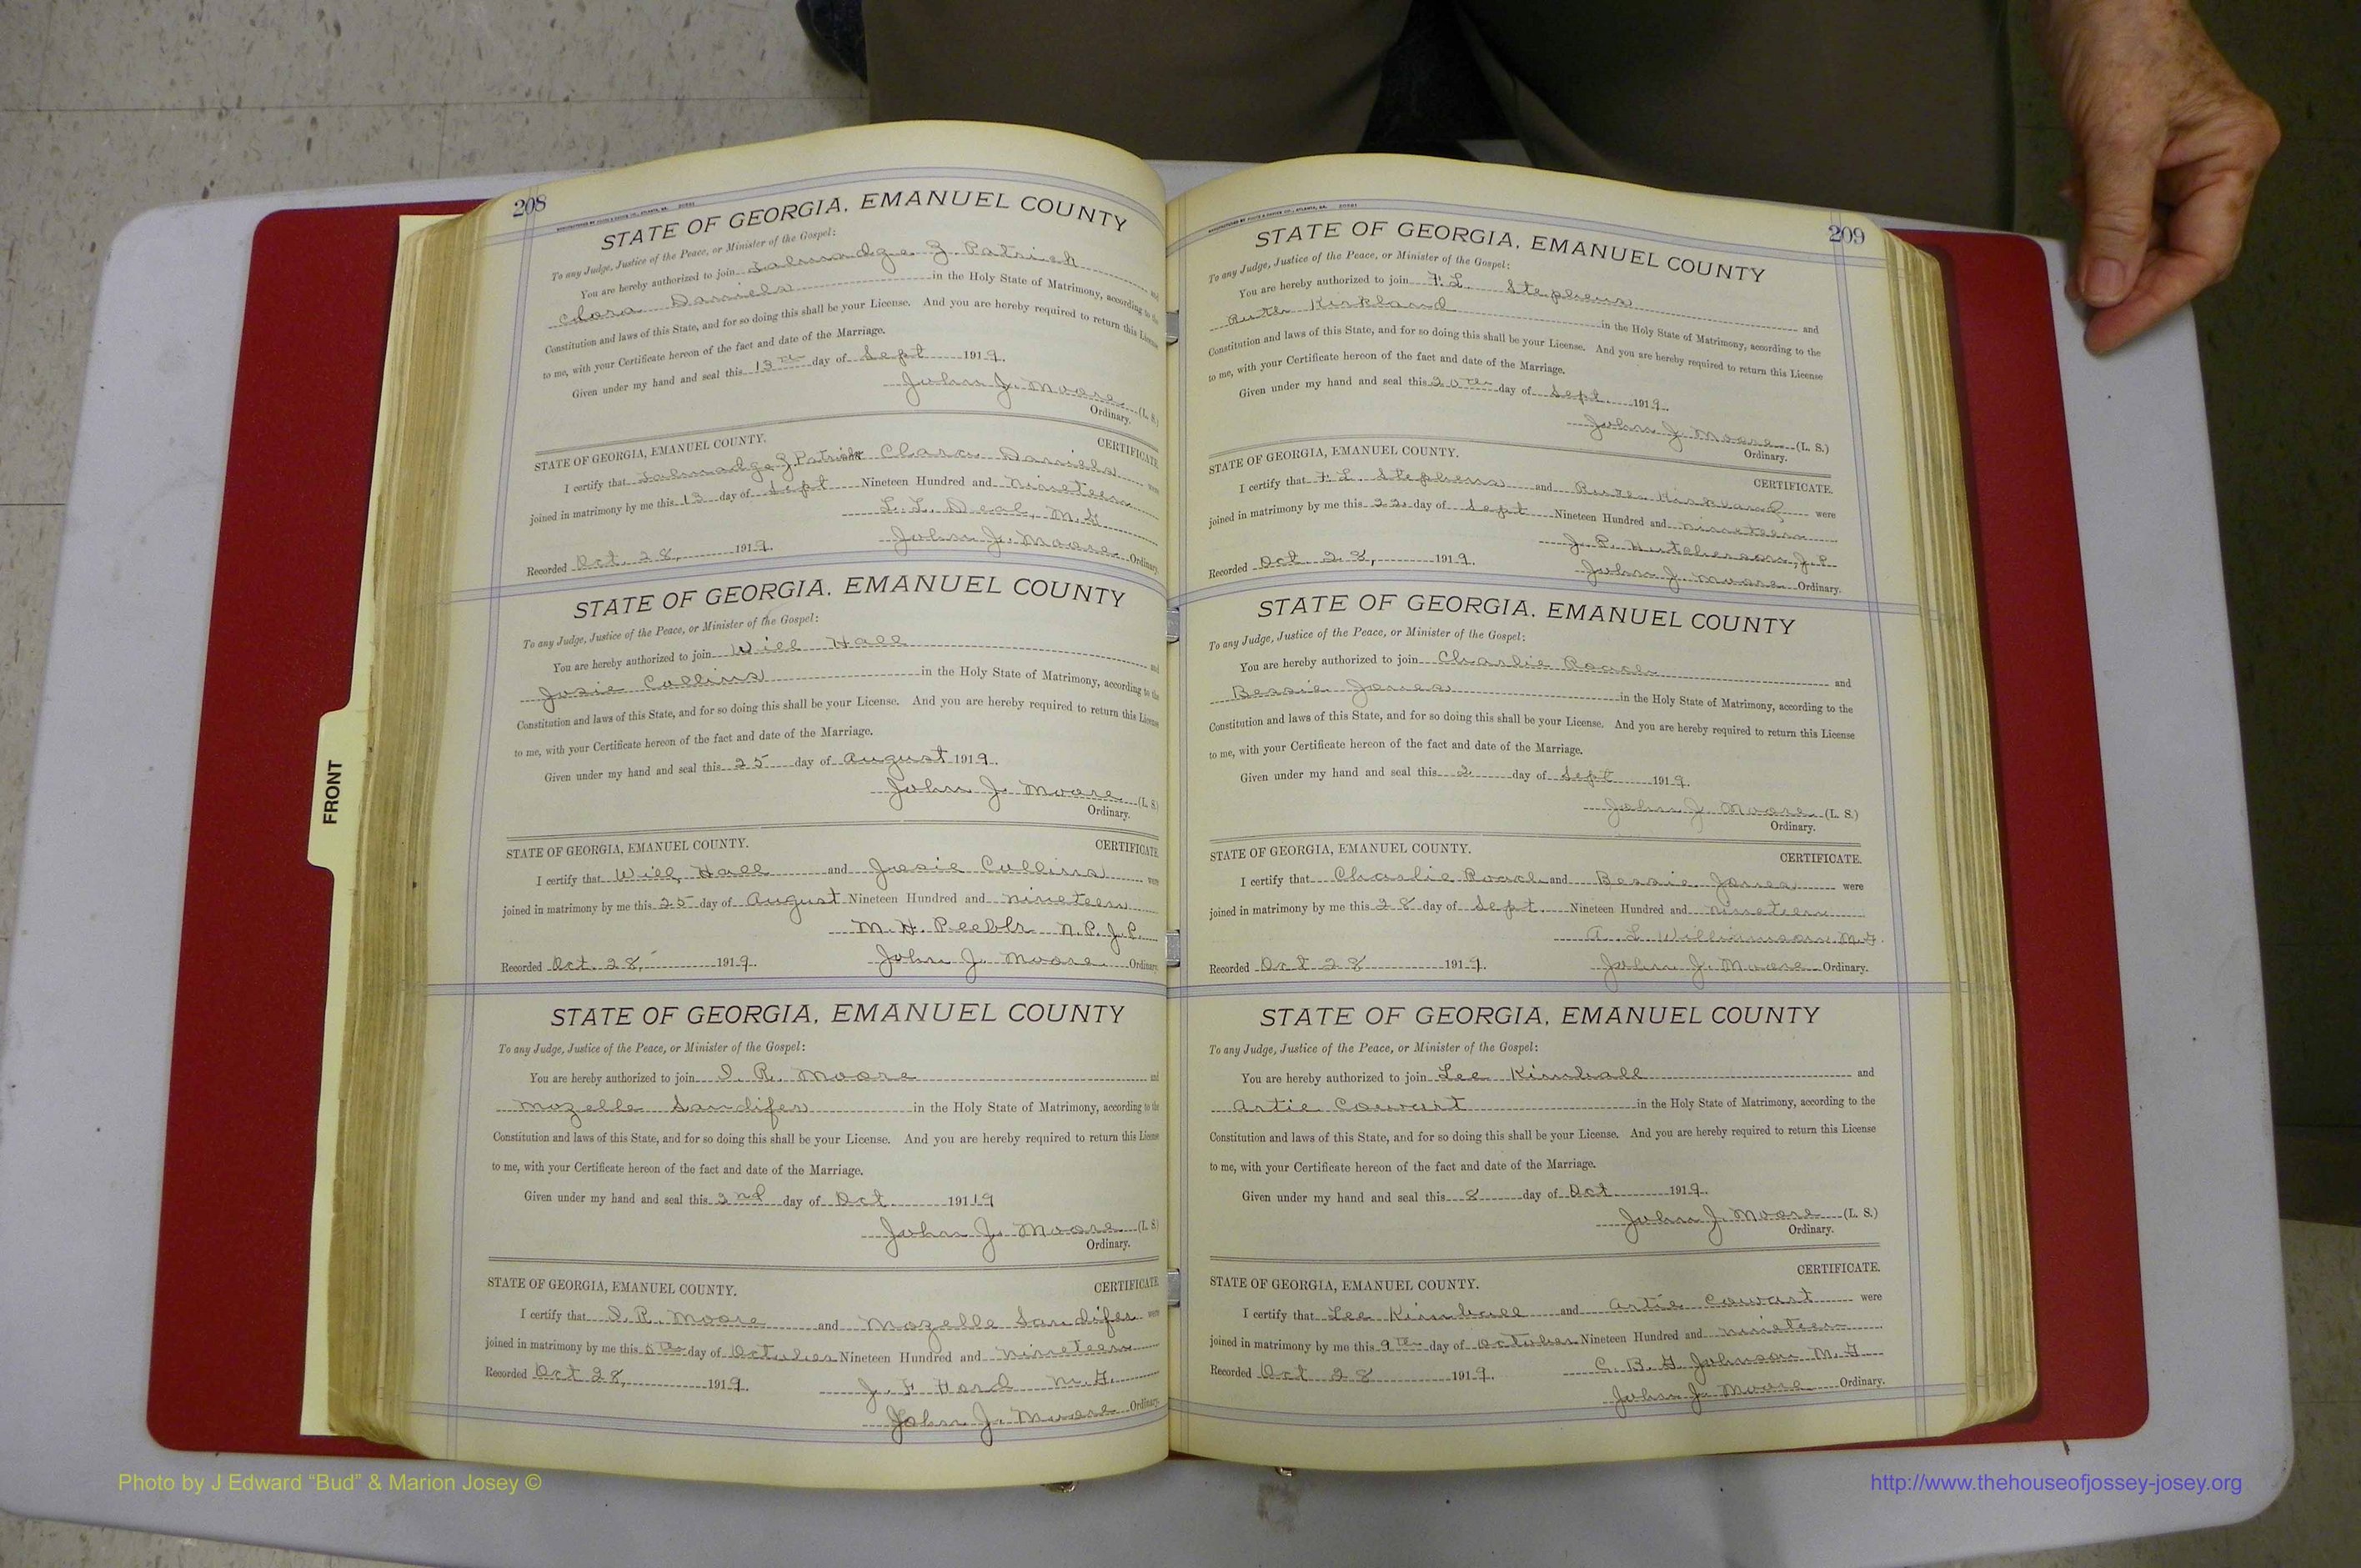 208
STATE OF GEORGIA, EMANUEL COUNTY
To any Judge, Justice of the Peace, or Minister of the Gospel:
You are hereby authorized to join Talmadge Z. Patrick and
Clora Daniels in the Holy State of Matrimony, according to the
Constitution and laws of this State, and for so doing this shall be your License. And you are hereby required to return this License
to me, with your Certificate hereon of the fact and date of the Marriage.
Given under my hand and seal this 13th day of Sept 1919.
John J. Moore (L. S.)
Ordinary.
STATE OF GEORGIA, EMANUEL COUNTY. CERTIFICATE
I certify that Talmadge Z. Patrick Clara Daniels were
joined in matrimony by me this 13 day of Sept Nineteen Hundred and nineteen
L. L. Deal, M.G
Recorded Oct. 28, 1919. John J. Moore Ordinary
STATE OF GEORGIA, EMANUEL COUNTY
To any Judge, Justice of the Peace, or Minister of the Gospel:
You are hereby authorized to join Will Hall and
Josie Collins in the Holy State of Matrimony, according to the
Constitution and laws of this State, and for so doing this shall be your License. And you are hereby required to return this License
to me, with your Certificate hereon of the fact and date of the Marriage.
Given under my hand and seal this 25 day of August 1919.
John J. Moore (L. S)
Ordinary.
STATE OF GEORGIA, EMANUEL COUNTY. CERTIFICATE
I certify that Will Hall and Josie Collins were
joined in matrimony by me this 25 day of August Nineteen Hundred and nineteen
M. H. Peebls N. P. J. P.
Recorded Oct. 28, 1919. John J. Moore Ordinary
STATE OF GEORGIA, EMANUEL COUNTY
To any Judge, Justice of the Peace, or Minister of the Gospel:
You are hereby authorized to join I. R. Moore and
Mozelle Sandifer in the Holy State of Matrimony, according to the
Constitution and laws of this State, and for so doing this shall be your License. And you are hereby required to return this License
to me, with your Certificate hereon of the fact and date of the Marriage.
Given under my hand and seal this 2nd day of Oct 19119
John J. Moore (L. S)
Ordinary.
STATE OF GEORGIA, EMANUEL COUNTY. CERTIFICATE
I certify that I. R. Moore and Mozelle Sandifer were
joined in matrimony by me this 5th day of October Nineteen Hundred and nineteen
Recorded Oct 28, 1919. J. F. Ford M. G.
John J. Moore Ordinary
209
STATE OF GEORGIA, EMANUEL COUNTY
To any Judge, Justice of the Peace, or Minister of the Gospel:
You are hereby authorized to join F. L. Stephens and
Ruth Kirkland in the Holy State of Matrimony, according to the
Constitution and laws of this State, and for so doing this shall be your License. And you are hereby required to return this License
to me, with your Certificate hereon of the fact and date of the Marriage.
Given under my hand and seal this 20th day of Sept. 1919.
John J Moore (L. S.)
Ordinary.
STATE OF GEORGIA, EMANUEL COUNTY. CERTIFICATE.
I certify that F. L. Stephens and Ruth were
joined in matrimony by me this 22 day of Sept Nineteen Hundred and nineteen
J. R. Hutcherson, J. P.
Recorded Oct. 28, 1919. John J. Moore Ordinary.
STATE OF GEORGIA, EMANUEL COUNTY
To any Judge, Justice of the Peace, or Minister of the Gospel:
You are hereby authorized to join Charlie Roach and
Bessie Jones in the Holy State of Matrimony, according to the
Constitution and laws of this State, and for so doing this shall be your License. And you are hereby required to return this License
to me, with your Certificate hereon of the fact and date of the Marriage.
Given under my hand and seal this 2 day of Sept 1919.
John J. Moore (L. S.)
Ordinary.
STATE OF GEORGIA, EMANUEL COUNTY. CERTIFICATE.
I certify that Charlie Roach and Bessie Jones were
joined in matrimony by me this 28 day of Sept. Nineteen Hundred and nineteen
A. L. Williamson M.G.
Recorded Oct 28 1919. John J. Moore Ordinary.
STATE OF GEORGIA, EMANUEL COUNTY
To any Judge, Justice of the Peace, or Minister of the Gospel:
You are hereby authorized to join Lee Kimball and
Artie Cowart in the Holy State of Matrimony, according to the
Constitution and laws of this State, and for so doing this shall be your License. And you are hereby required to return this License
to me, with your Certificate hereon of the fact and date of the Marriage.
Given under my hand and seal this 8 day of Oct 1919.
John J. Moore (L. S.)
Ordinary.
STATE OF GEORGIA, EMANUEL COUNTY. CERTIFICATE.
I certify that Lee Kimball and Artie Cowart were
joined in matrimony by me this 9th day of October Nineteen Hundred and nineteen
Recorded Oct 28 1919. C. B. G. Johnson M. G
John J. Moore Ordinary.
FRONT
Photo by J Edward “Bud” & Marion Josey ©
http://www.thehouseofjossey-josey.org